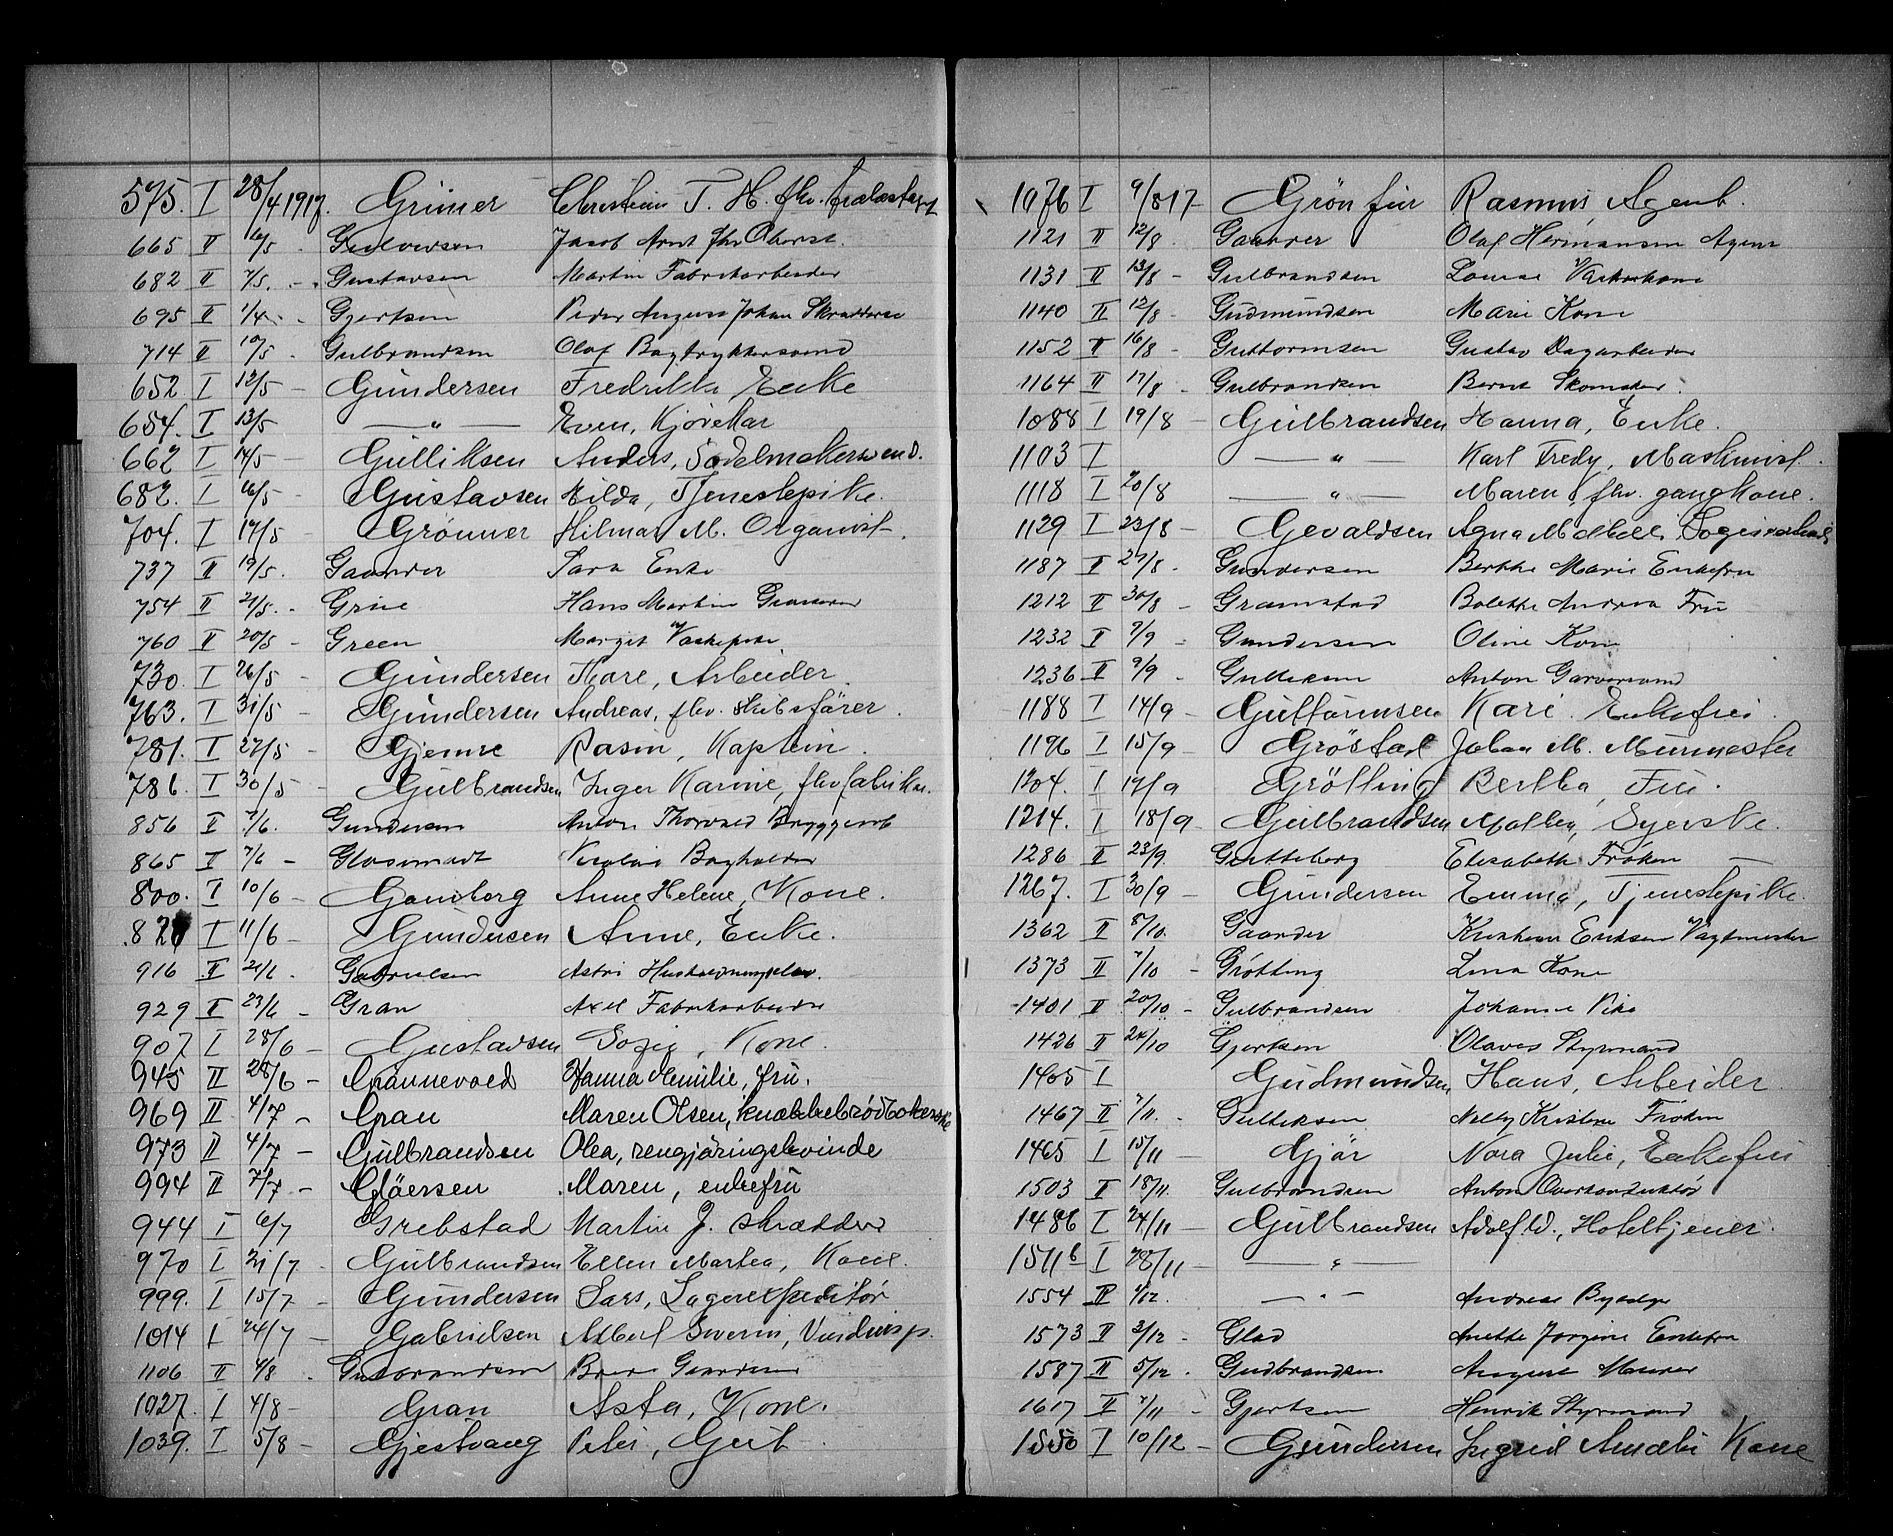 575. I 28/4 1917. Grüner Christian T. H. fhv.
665 II 6/5 - Jacob Arnt fhv Oberst.
682 II 7/5. - Gustavsen Martin Fabrikarbeider
695 II 1/4 - Gjertsen Peder August Johan
714 II 10/5 - Gulbrandsen Olof Bogtrykkersvend
652 I 12/5 - Gundersen Fredrikke Enke
654. I 13/5 — " — Even, Kjørekar
662 I 14/5 - Gulliksen Anders, Sadelmakersvend.
682. I 16/5 - Gustavsen Hilda, Tjenestepike.
704. I 17/5 - Grönner Hilmar M. Organist.
737 II 19/5. Gaarder Sara Enke
754 II 21/5. - Grue Hans Martin
760 II 20/5 - Green Margit Vaskepike
730. I 26/5 - Gundersen Kare, Arbeider.
763. I 31/5 - Gundersen Andreas, fhv. skibsförer.
781. I 27/5 - Gjemre Rasm, Kaptein.
786. I 30/5 - Gulbrandsen Inger Karine, fhv fabrikar.
856 II 7/6. Gundersen Anton Thorvald
865 II 7/6 - Bogholder
800. I 10/6 - Gamborg Anne Helene, Kone.
I 11/6 - Gundersen Anne, Enke.
916 II 21/6. Gabrielsen Astri
929 II 23/6 - Gran Axel Fabrikarbeider
907 I 28/6 - Gustavsen Sofie, Kone.
945 II 28/6 - Grannevold Hanna Emilie, fru.
969 II 4/7 - Gran Maren Olsen, knækkebrødbakerske
973 II 4/7 - Gulbrandsen Olea, rengjöringskvinde
994 II 7/7 - Glöersen Maren, enkefru
944 I 6/7 Grebstad Martin J. skrædder
970 I 21/7 - Gulbrandsen Ellen Martea, Kone.
999. I 15/7 - Gundersen Lars, Lagerexpeditör
1014 I 24/7 - Gabrielsen Albert Severin,
1106 II 4/8 . Gulbrandsen
1027. I 4/8 - Gran Asta, Kone.
1039. I 5/8 - Gjestvang Peter, Gut.
1076 I 9/8 17 - Rasmus, Agent.
1121 II 12/8. Gaarder Olaf Hermansen Agent
1131 II 13/8 - Gulbrandsen Louise Vaskerkone
1140 II 12/8 - Gudmundsen Marie Kone
1152 II 16/8 - Guttormsen Gustav Dagarbeider
1164 II 17/8 - Gulbrandsen Bernt Skomaker.
1088 I 19/8 - Gulbrandsen Hanna, Enke.
1103 I — " — Karl Fredy, Maskinist.
1118 I 20/8 — " — Maren, fhv. gangkone.
1129 I 23/8 - Gevaldsen
1187 II 27/8. Gundersen Berthe Marie Enkefru
1212 II 30/8 - Gramstad Bolette Andrea Fru
1232 II 9/9 - Gundersen Oline Kone
1236 II 9/9 - Gulliksen Anton Garversvend
1188 I 14/9 - Guttormsen Kari. Enkefru.
1196 I 15/9 - Gröstad Johan M. Murmester
1204. I 17/9 Grötting Bertha, Fru.
1214. I 18/9 - Gulbrandsen Mathea, Syerske.
1286 II 23/9. Elisabeth Frøken —
1267. I 30/9 - Gundersen Emma, Tjenestepike.
1362 II 8/10. Gaarder Kristian Eriksen Vagtmester
1373 II 7/10 - Grøtting Lina Kone
1401 II 20/10 - Gulbrandsen Johanne Pike
1426 II 24/10 Gjertsen Olaves Styrmand
1405 I Gudmundsen, Hans, Arbeider.
1467 II 7/11. - Gulliksen Nelly Kristine Frøken
1465 I 15/11 - Gjør Nora Julie, Enkefru
1503 II 18/11. Gulbrandsen Anton Overkonduktør
1486 I 24/11 - Gulbrandsen Adolf W., Hoteltjener.
1511b I 28/11 - — " —
1554 II 1/12. — " — Andrea
1573 II 3/12 - Glad Anette Jorgine Enkefru
1587 II 5/12. Gudbrandsen August Murer
1617 II 7/11 - Gjertsen Henrik Styrmand
1550 I 10/12 - Gundersen Ingrid Amalie Kone